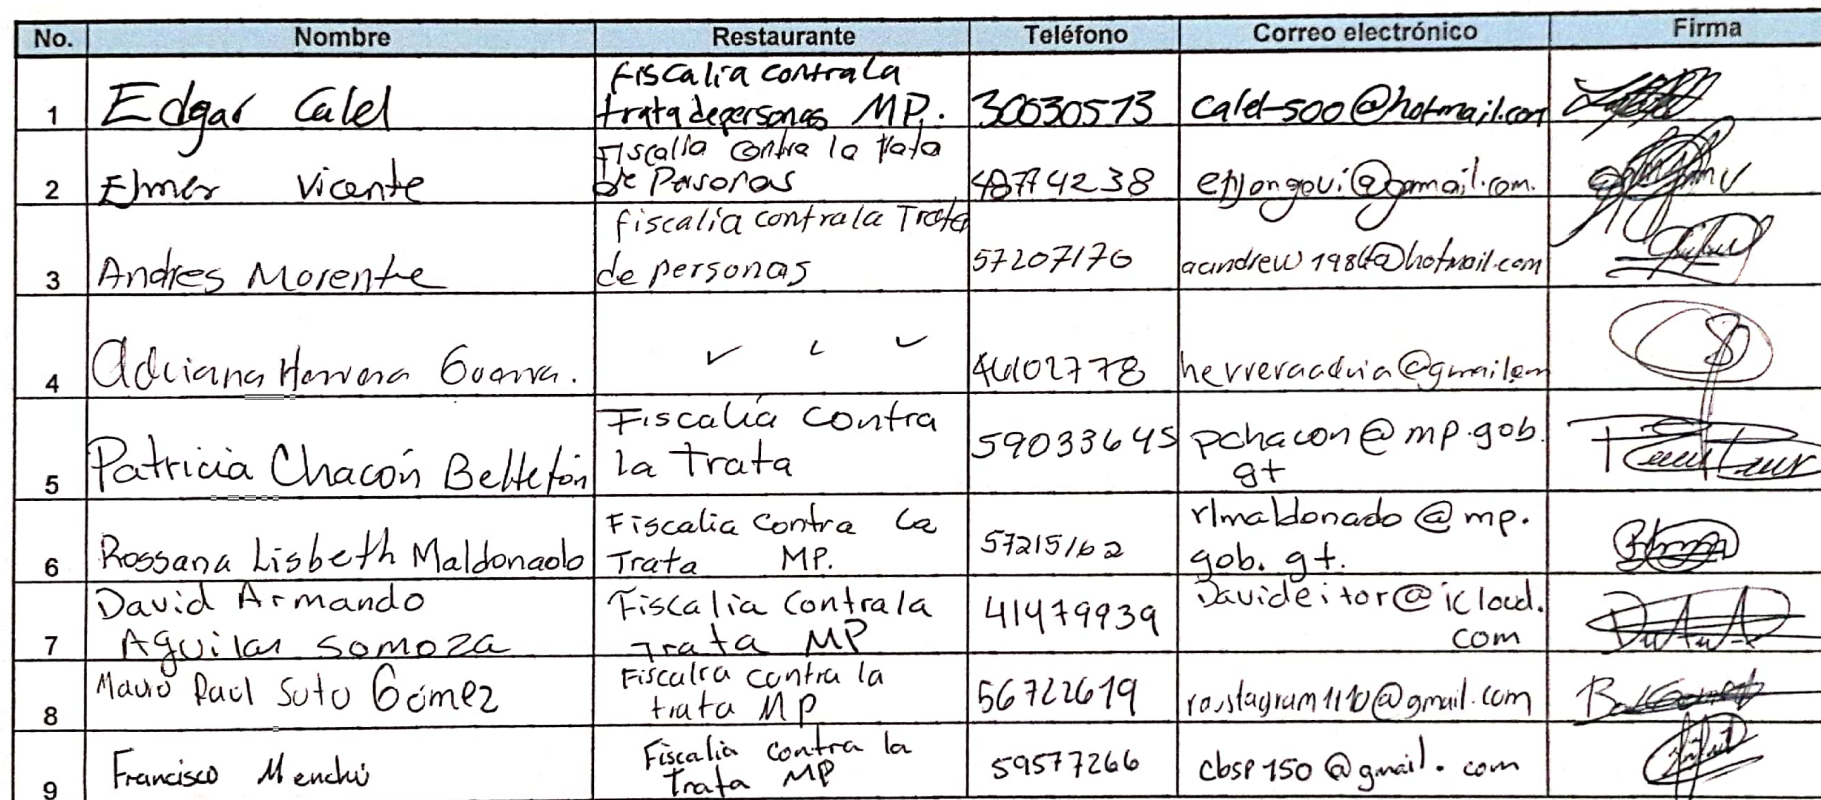 No. Nombre Restaurante Teléfono Correo electrónico Firma
1 Edgar Calel Fiscalia contra la trata de personas MP. 30030573 calel-500@hotmail.com
2 Elmer Vicente Fiscalia contra la trata de Personas 48774238 @gmail.com.
3 Andres Morente fiscalia contra la Trata de personas 57207170 aandrew1986@hotmail.com
4 Adriana Herrera Guerra. 46102778 herreraadria@gmail.com
5 Patricia Chacón Belletón Fiscalía contra la Trata 59033645 pchacon@mp.gob.gt
6 Rossana Lisbeth Maldonado Fiscalia contra la Trata MP. 57215162 rlmaldonado@mp.gob.gt.
7 David Armando Aguilar Somoza Fiscalia Contra la Trata MP 41479939 Davideitor@icloud.com
8 Mario Raul Soto Gómez Fiscalia contra la trata MP 56722619 @gmail.com
9 Francisco Menchú Fiscalia contra la Trata MP 59577266 cbsp150@gmail.com